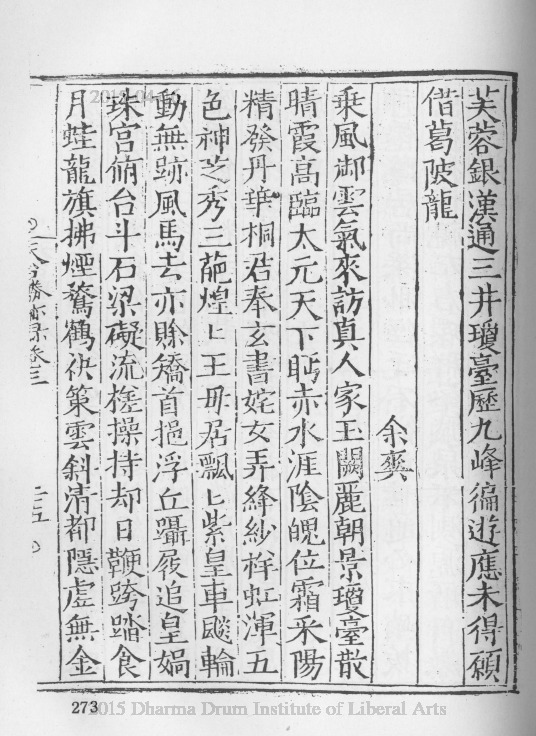 芙蓉銀漢通三井瓊臺歷九峰徧遊應未得願
借葛陂龍
余爽
乗風御雲氣來訪真人家玉闕麗朝景瓊臺散
晴霞高臨太元天下眄赤水涯陰魄位霜采陽
精發丹華桐君奉玄書姹女弄絳紗幢虹渾五
色神芝秀三葩煌〻王母居飄〻紫皇車飈輪
動無跡風馬去亦賒矯首挹浮丘躡屐追皇媧
珠宮俯台斗石梁礙流槎操持却日鞭跨踏食
月蛙龍旗拂煙鶩鶴袂策雲斜清都隱虛無金
天台勝蹟录卷三
二五
273
2015 Dharma Drum Institute of Liberal Arts